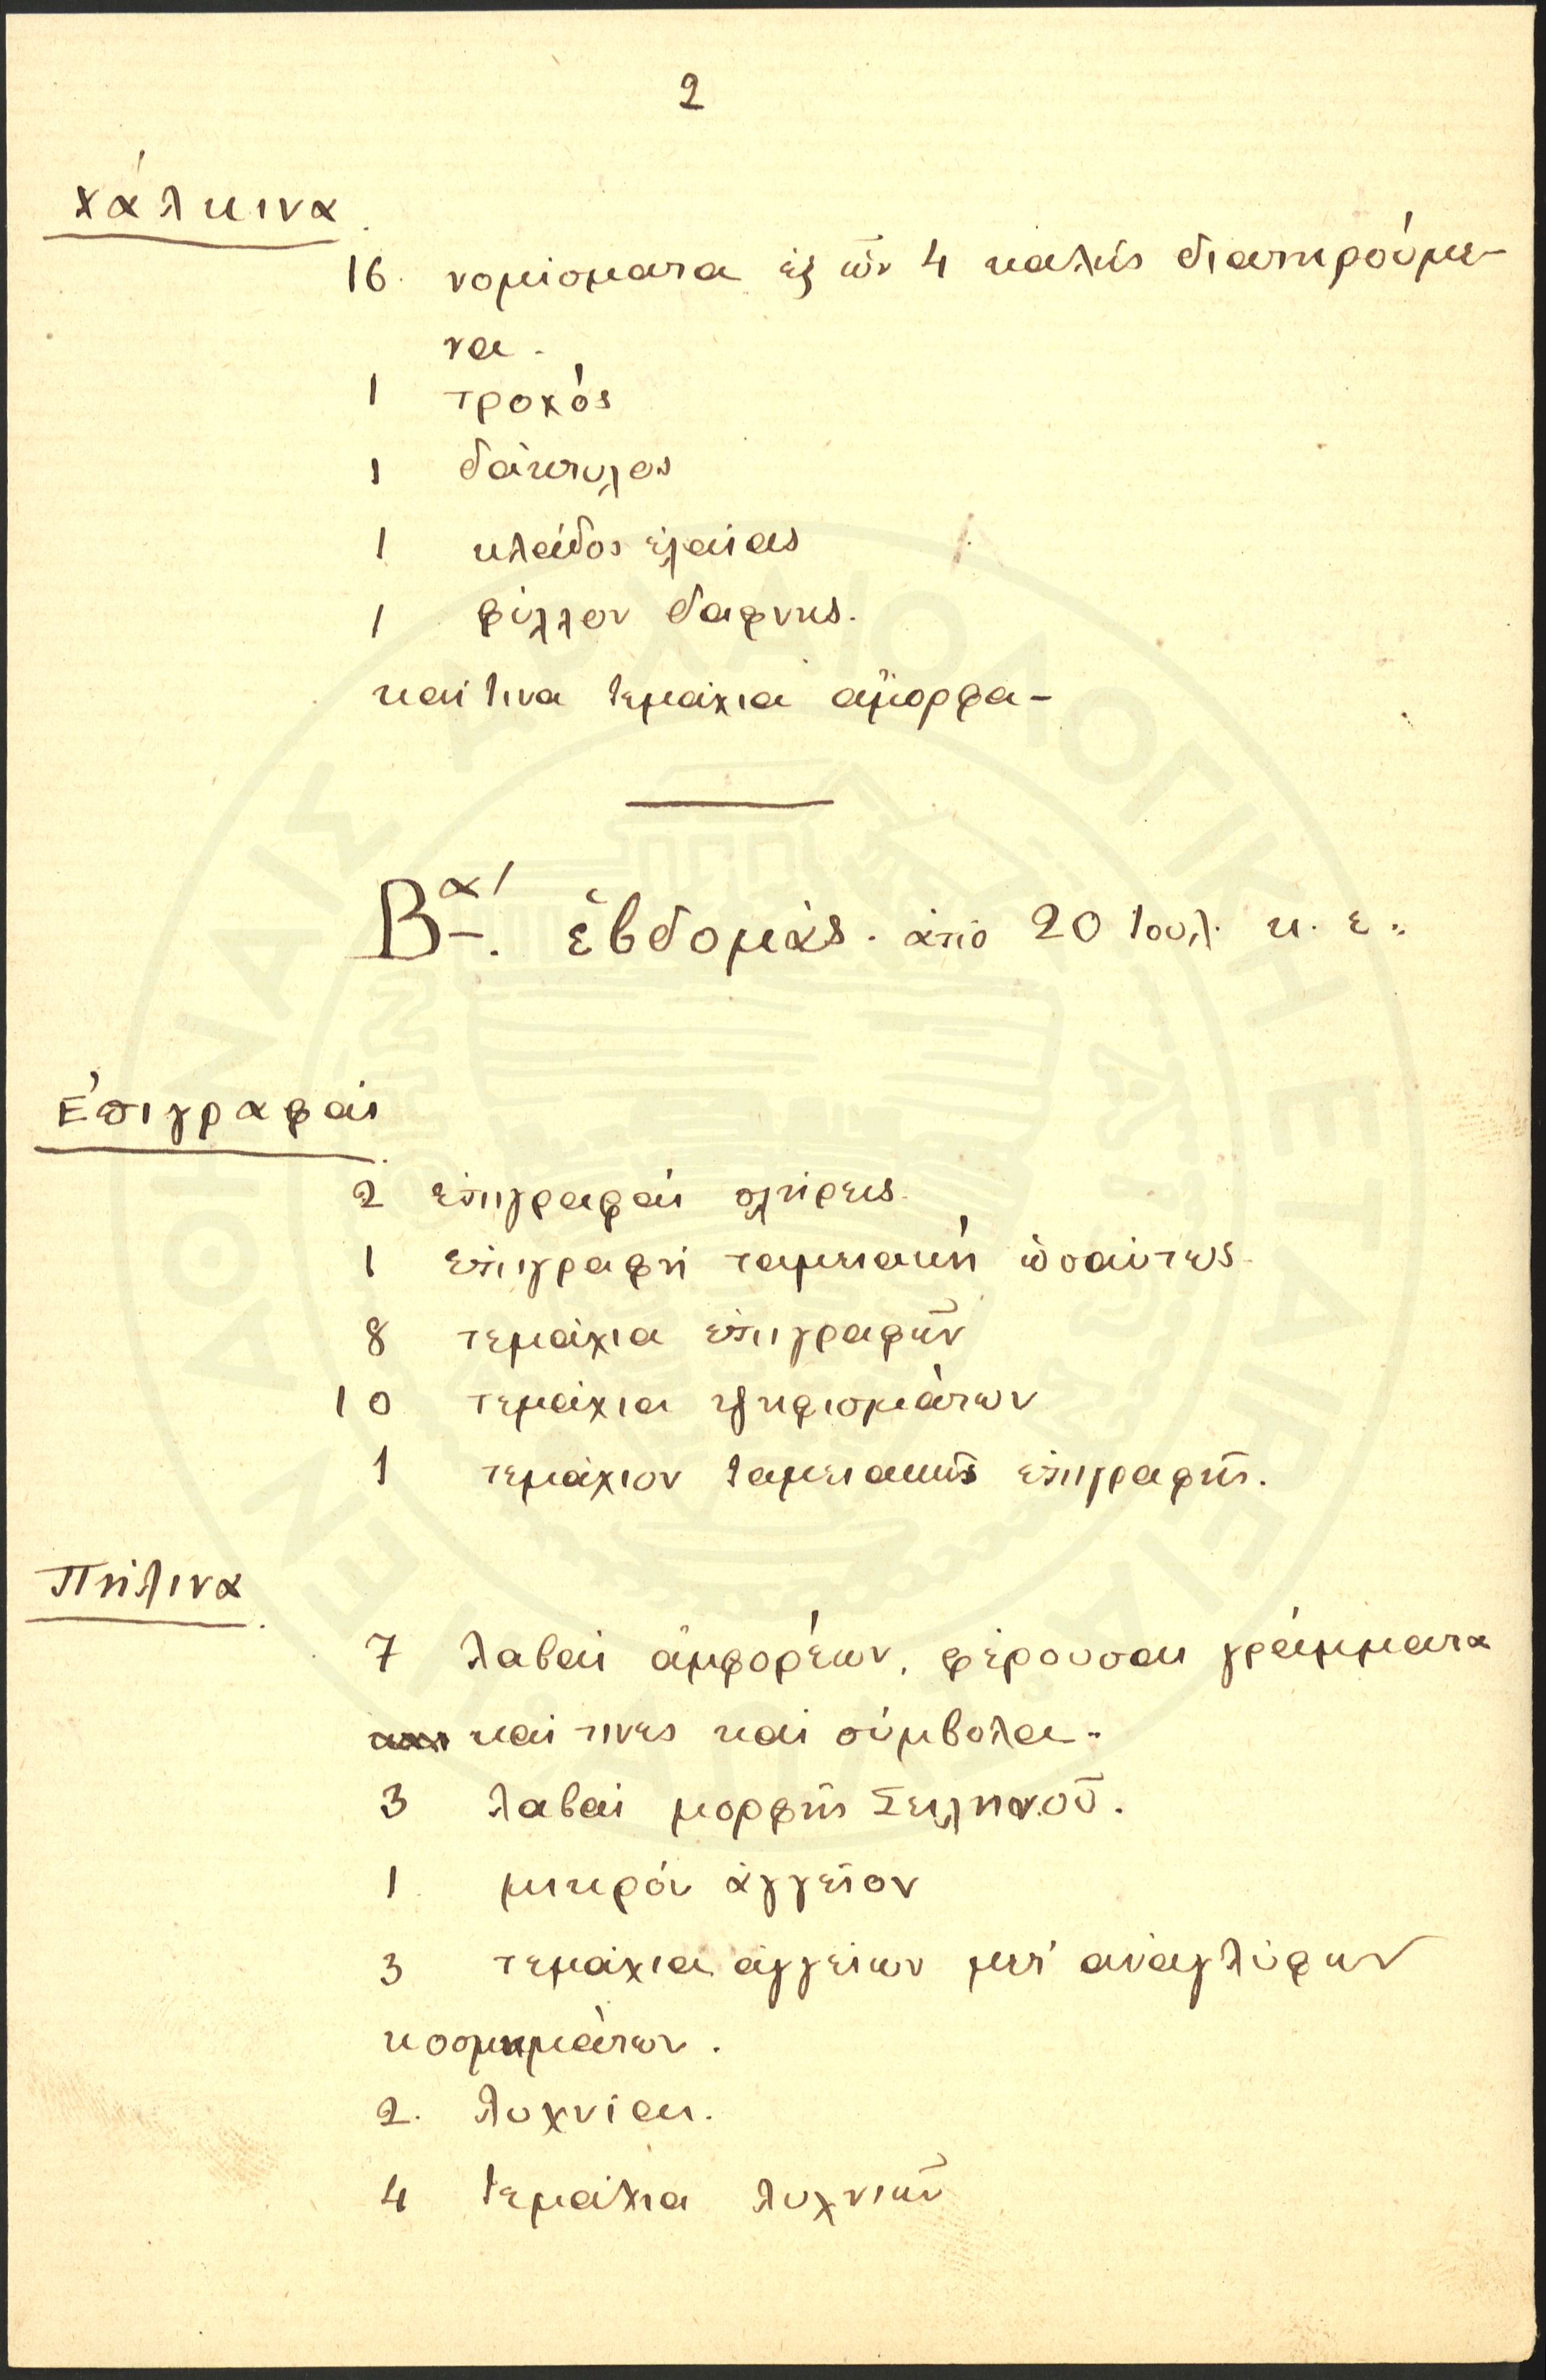 2
χάλκινα
16. νομίσματα ἐξ ὧν 4 καλῶς διατηρούμε-
να.
1 τροχός
1 δάκτυλος
1 κλάδος ἐλαίας
1 φύλλον δάφνης.
καί τινα τεμάχια ἄμορφα-
Βα΄. ἑβδομὰς. ἀπὸ 20 Ἰουλ. κ. ἑ.
Ἐπιγραφαὶ
2 ἐπιγραφαὶ πλήρεις.
1 ἐπιγραφὴ ταμειακή ὡσαύτως.
8 τεμάχια ἐπιγραφῶν
10 τεμάχια ψηφισμάτων
1 τεμάχιον ταμειακῆς ἐπιγραφῆς.
Πήλινα
7 λαβαὶ ἀμφορέων, φέρουσαι γράμματα
καί τινες καὶ σύμβολα.
3 λαβαὶ μορφῆς Σειληνοῦ.
1 μικρὸν ἀγγεῖον
3 τεμάχια ἀγγείων μετ' ἀναγλύφων
κοσμημάτων.
2. λυχνίαι.
4 τεμάχια λυχνιῶν
ΕΝ ΑΘΗΝΑΙΣ ΑΡΧΑΙΟΛΟΓΙΚΗ ΕΤΑΙΡΕΙΑ